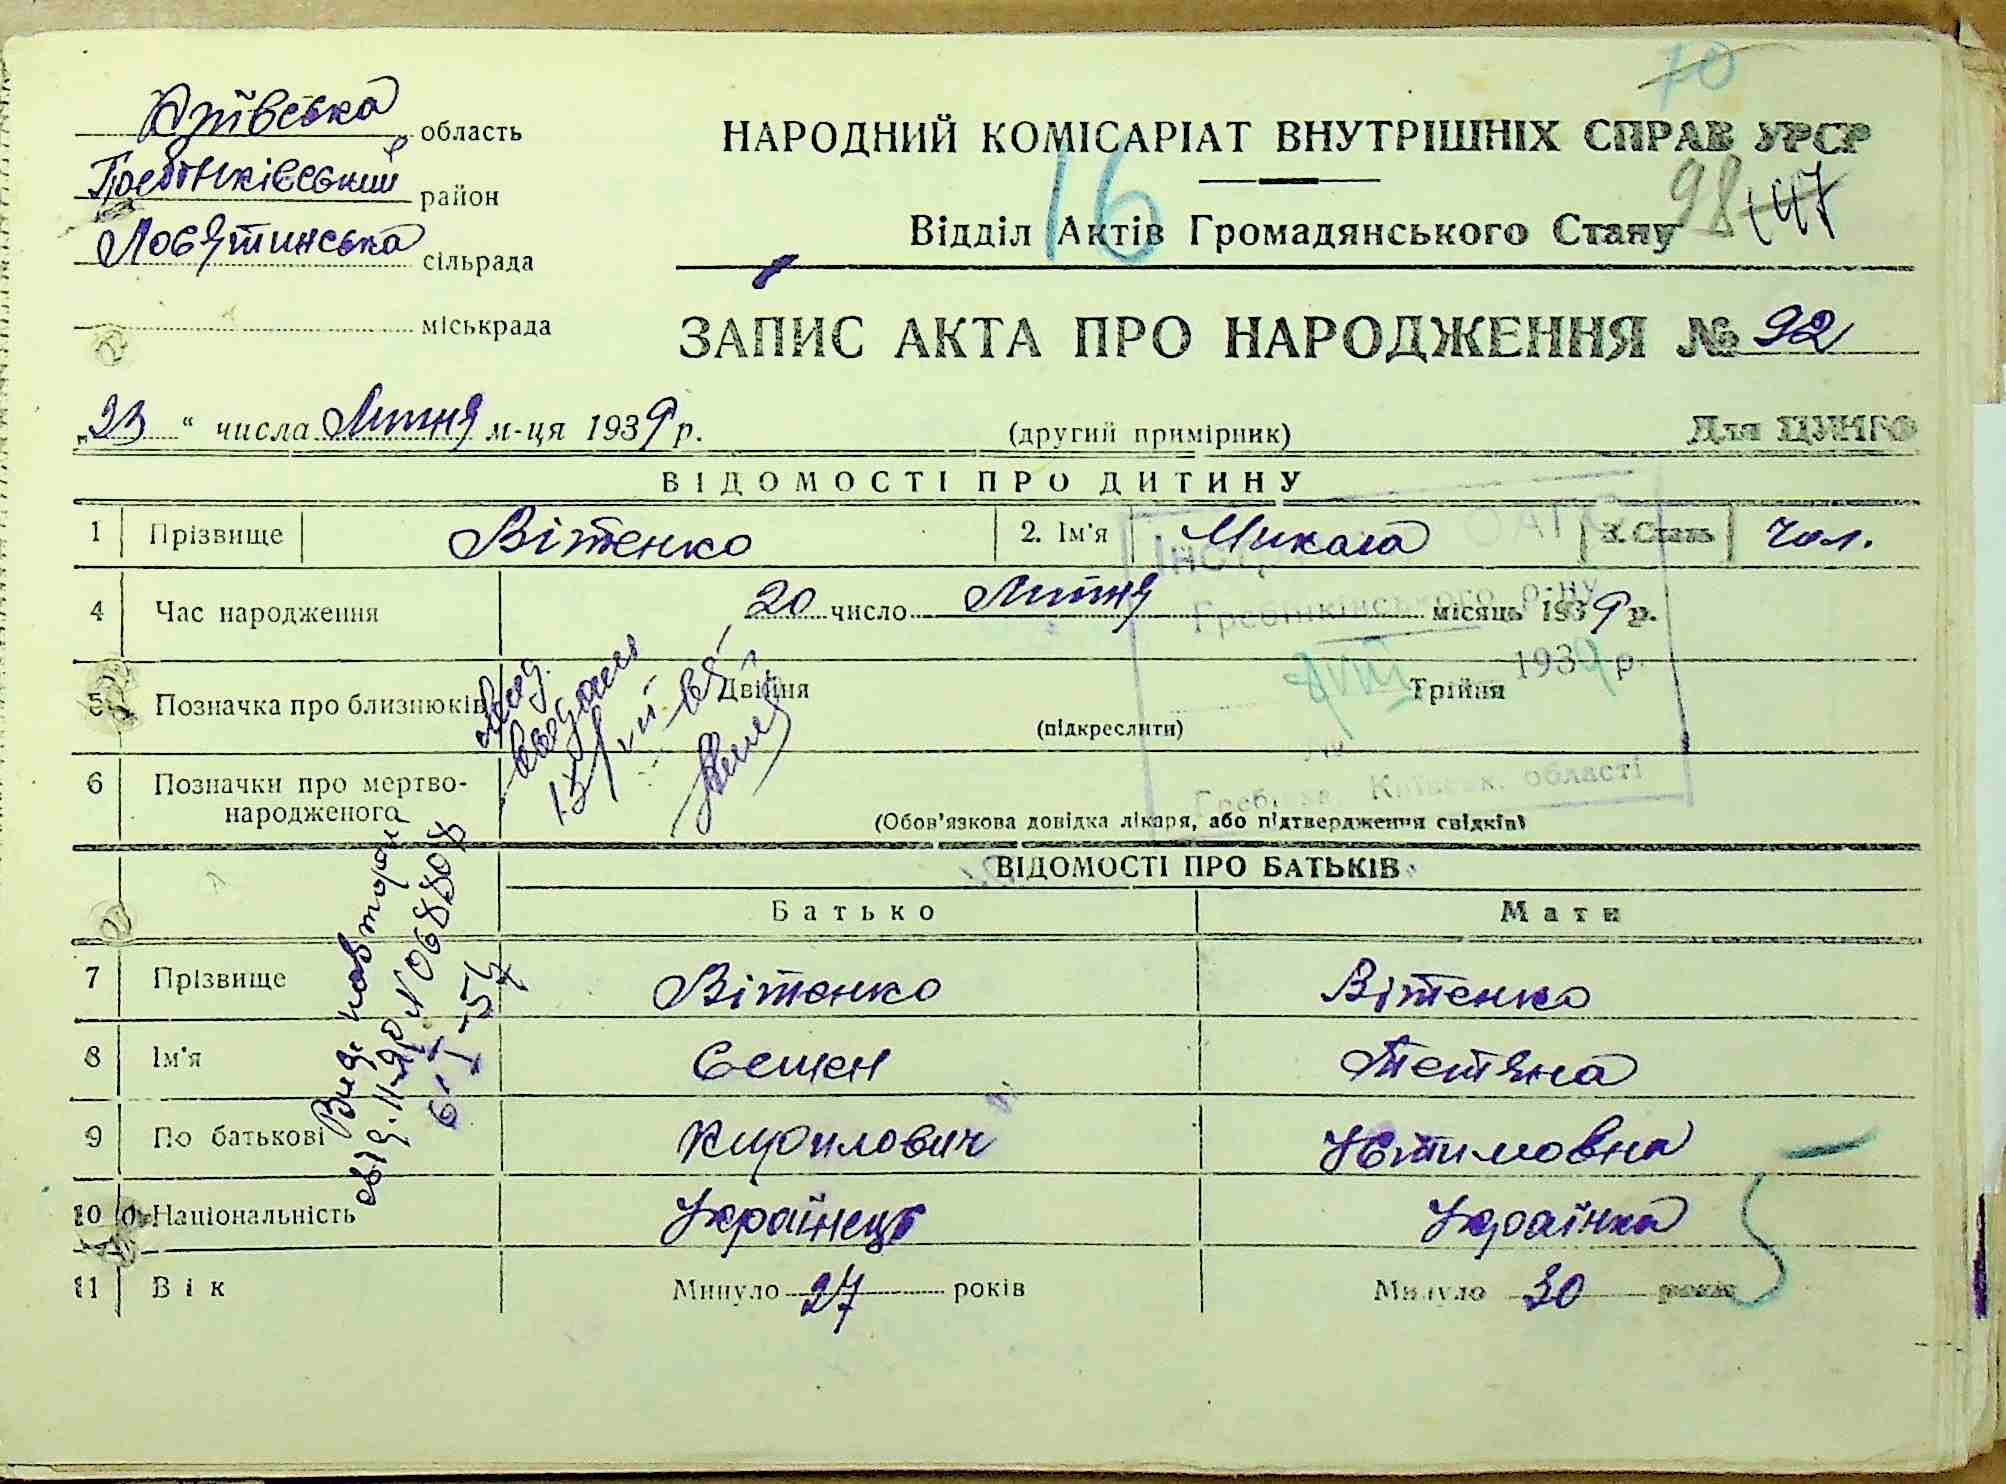 70
Київська область
Гребінківський район
Лосятинська сільрада
міськрада
НАРОДНИЙ КОМІСАРІАТ ВНУТРІШНІХ СПРАВ УРСР
16
98 147
Відділ Актів Громадянського Стану
ЗАПИС АКТА ПРО НАРОДЖЕННЯ № 92
„23“ числа Липня м-ця 1939 р.
(другий примірник)
Для ЦУНГО
ВІДОМОСТІ ПРО ДИТИНУ
1 Прізвище Вітенко 2. Ім'я Микола 3. Стать чол.
4 Час народження 20 число Липня місяць 1939 р.
Гребінківського р-ну
VIII 1939 р.
5 Позначка про близнюків Двійня Трійня
(підкреслити)
6 Позначки про мертво-
народженого
Київськ. області
(Обов'язкова довідка лікаря, або підтвердження свідків)
Вид. повторн
N 068808
6-I-54
ВІДОМОСТІ ПРО БАТЬКІВ
Батько Мати
7 Прізвище Вітенко Вітенко
8 Ім'я Семен Тетяна
9 По батькові Кирилович Євтимовна
10 Національність Українець Українка
11 Вік Минуло 27 років Минуло 30 років